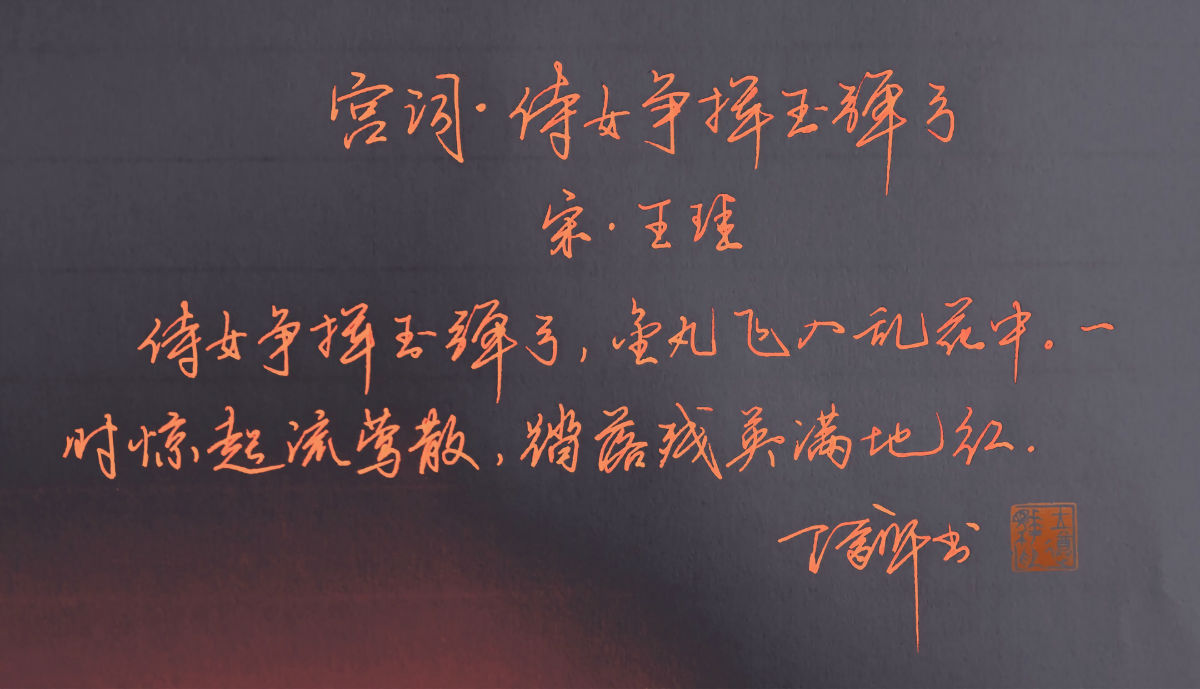 宫词·侍女争挥玉弹弓
宋·王珪
侍女争挥玉弹弓,金丸飞入乱花中。一
时惊起流莺散,踏落残英满地红.
书